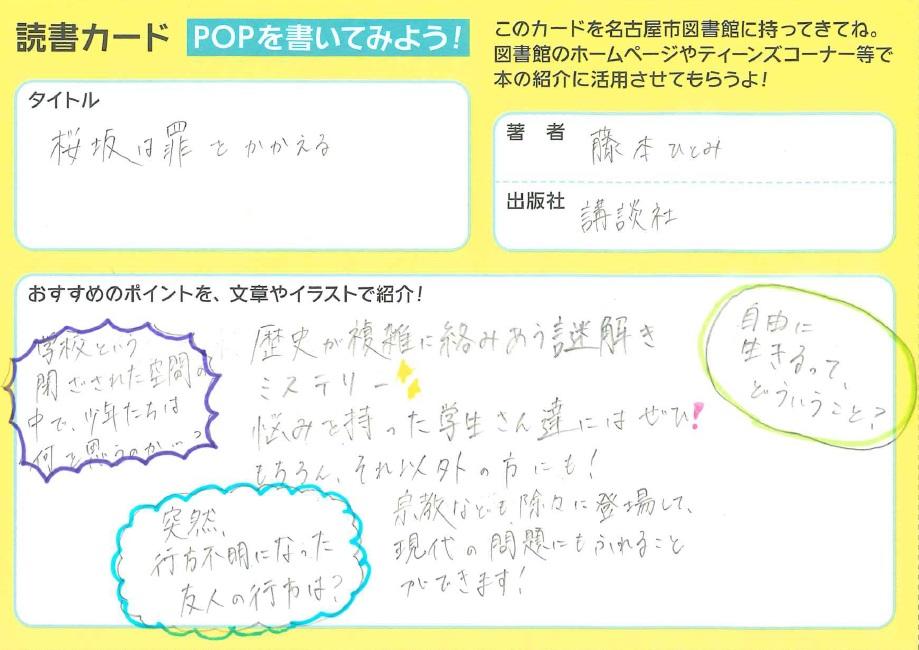 読書カード POPを書いてみよう!
このカードを名古屋市図書館に持ってきてね。
図書館のホームページやティーンズコーナー等で
本の紹介に活用させてもらうよ!
タイトル
桜坂は罪をかかえる
著 者 藤本ひとみ
出版社 講談社
おすすめのポイントを、文章やイラストで紹介!
学校という
閉ざされた空間の
中で、少年たちは
何を思うのか…?
歴史が複雑に絡みあう謎解き
ミステリー
悩みを持った学生さん達にはぜひ!
もちろん、それ以外の方にも!
宗教なども除々に登場して、
現代の問題にもふれること
ができます!
自由に
生きるって、
どういうこと?
突然、
行方不明になった
友人の行方は?